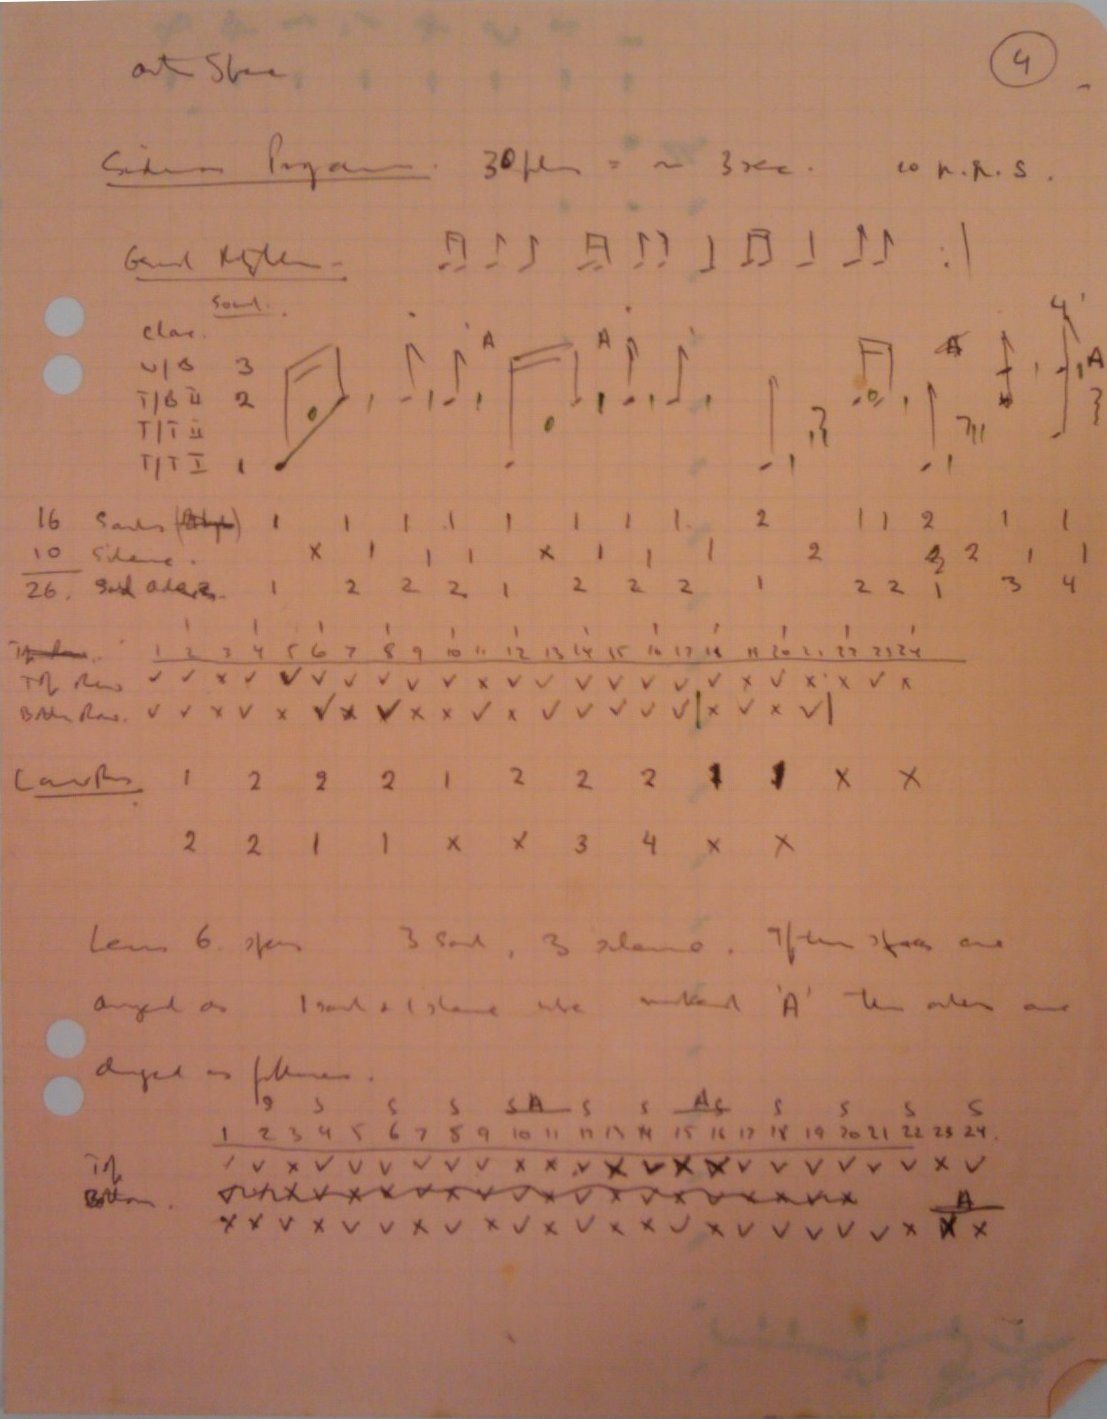 4
30 = ~ 3 sec. 10 p.p.s.
General Rhythm
Sound.
Clav.
W/B 3
T/B II 2
T/T II
T/T I 1
A A A 4 A
16 Sounds 1 1 1 1 1 1 1 1 2 1 1 2 1 1
10 Silence. x 1 1 1 x 1 1 1 2 2 2 1 1
26. Sound order. 1 2 2 2 1 2 2 2 1 2 2 1 3 4
1 2 3 4 5 6 7 8 9 10 11 12 13 14 15 16 17 18 19 20 21 22 23 24
Top Row ✓ ✓ x ✓ ✓ ✓ ✓ ✓ ✓ ✓ x ✓ ✓ ✓ ✓ ✓ ✓ ✓ x ✓ x x ✓ x
Bottom Row. ✓ ✓ x ✓ x ✓ x ✓ x x ✓ x ✓ ✓ ✓ ✓ ✓ | x ✓ x ✓ |
1 2 2 2 1 2 2 2 1 1 x x
2 2 1 1 x x 3 4 x x
Leaves 6 spaces 3 sound, 3 silence. If these spaces are
arranged as 1 sound + 1 silence where marked 'A' the orders are
changed as follows.
S S S S S A S S A S S S S S
1 2 3 4 5 6 7 8 9 10 11 12 13 14 15 16 17 18 19 20 21 22 23 24.
Top ✓ ✓ x ✓ ✓ ✓ ✓ ✓ ✓ x x ✓ x ✓ x x ✓ ✓ ✓ ✓ ✓ ✓ x ✓
Bottom.
A
x x ✓ x ✓ ✓ x ✓ x ✓ x ✓ x x ✓ x ✓ ✓ ✓ ✓ ✓ x x x